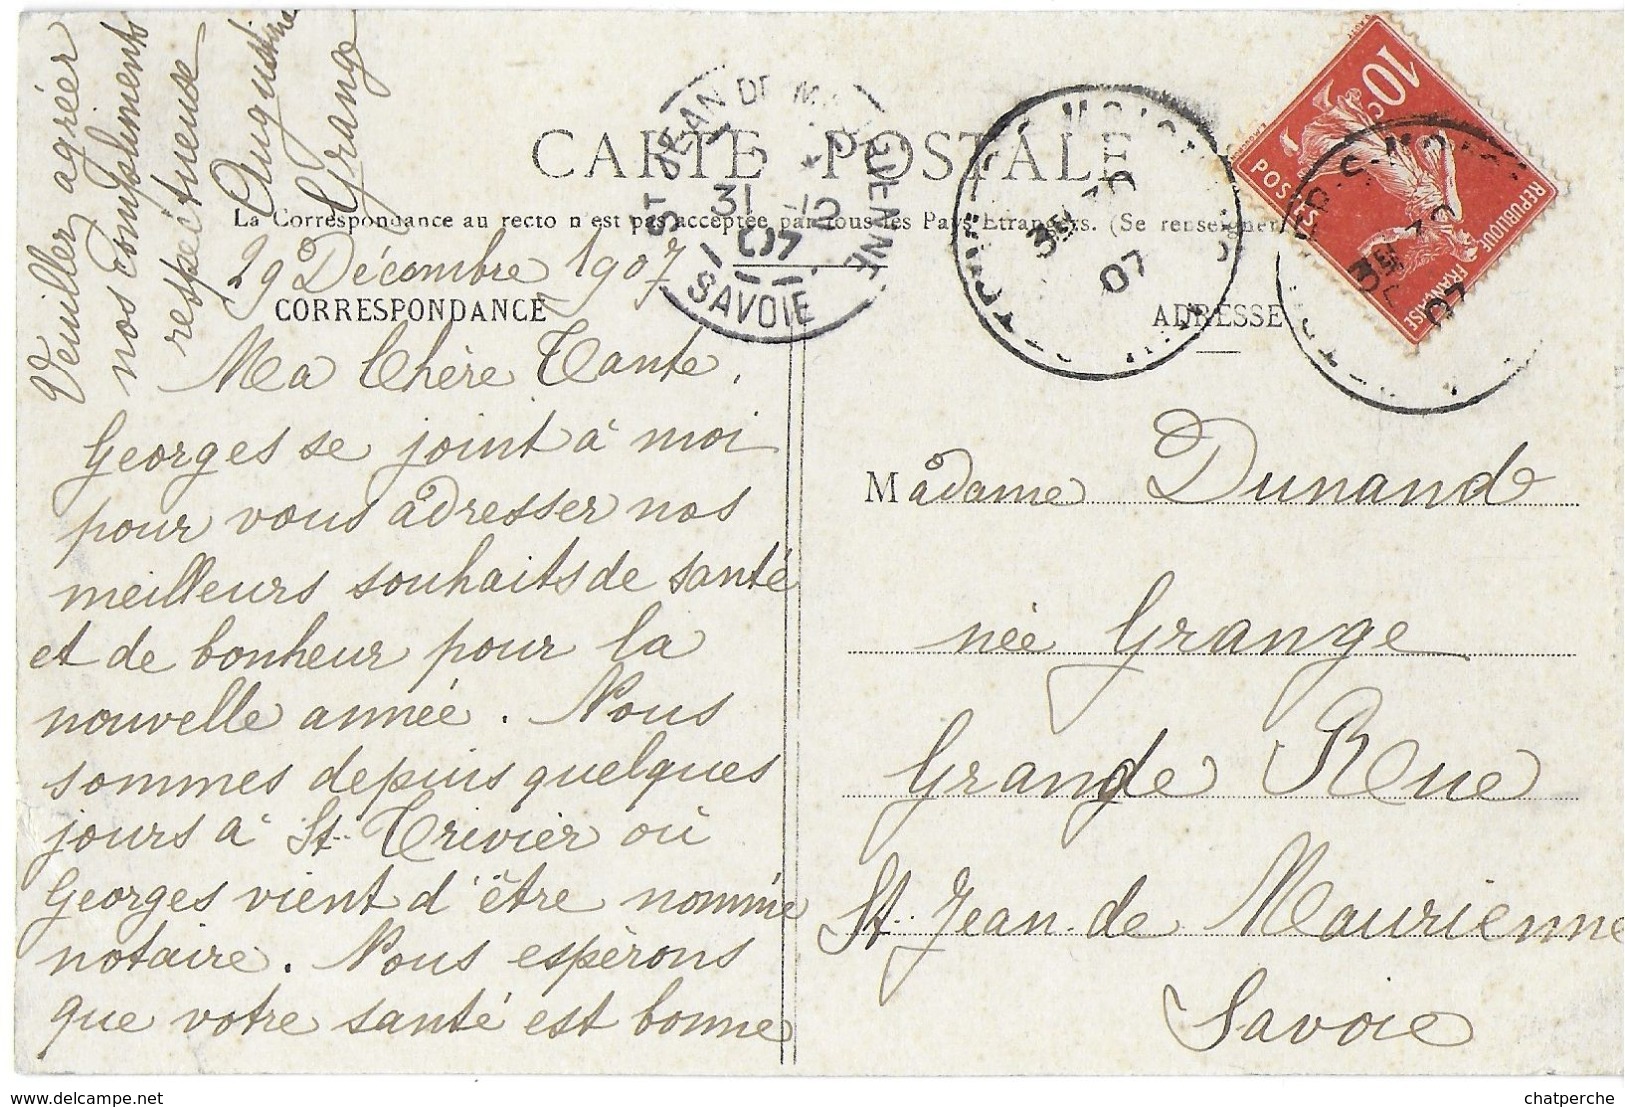 CARTE POSTALE
La Correspondance au recto n'est pas acceptée par tous les Pays Étrangers. (Se renseigner
CORRESPONDANCE
ADRESSE
29 Décembre 1907
Ma Chère Tante,
Georges se joint à moi
pour vous adresser nos
meilleurs souhaits de santé
et de bonheur pour la
nouvelle année. Nous
sommes depuis quelques
jours à St. Trivier où
Georges vient d'être nommé
notaire. Nous espérons
que votre santé est bonne
Veuillez agréer
nos compliments
respectueuse
Augustine
Grange
Madame Dunand
née Grange
Grande Rue
St. Jean de Maurienne
Savoie
ST JEAN DE MAURIENNE
31 -12
07
SAVOIE
07
10c
POSTES
REPUBLIQUE FRANÇAISE
07
chatperche
delcampe.net